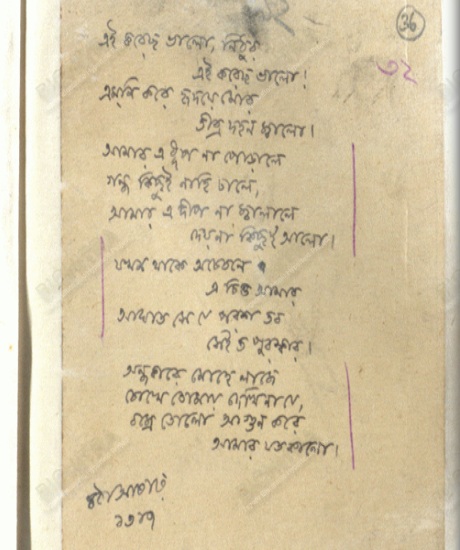 36
৩২
এই করেছ ভালো, নিঠুর
এই করেছ ভালো!
এমনি করে হৃদয়ে মোর
তীব্র দহন জ্বালো।
আমার এ ধূপ না পোড়ালে
গন্ধ কিছুই নাহি ঢালে,
আমার এ দীপ না জ্বালালে
দেয় না কিছুই আলো।
যখন থাকে অচেতনে
এ চিত্ত আমার
আঘাত সে যে পরশ তব
সেই ত পুরস্কার।
অন্ধকারে মোহে লাজে
চোখে তোমায় দেখি না যে,
বজ্রে তোলো আগুন করে
আমার যত কালো।
৪ঠা আষাঢ়
১৩১৭